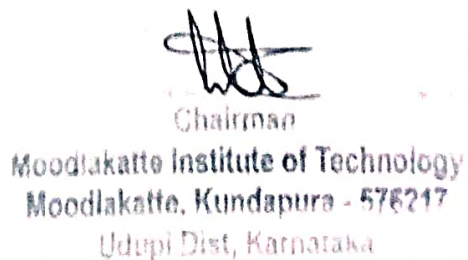 Chairman
Moodlakatte Institute of Technology
Moodlakatte, Kundapura - 576217
Udupi Dist, Karnataka